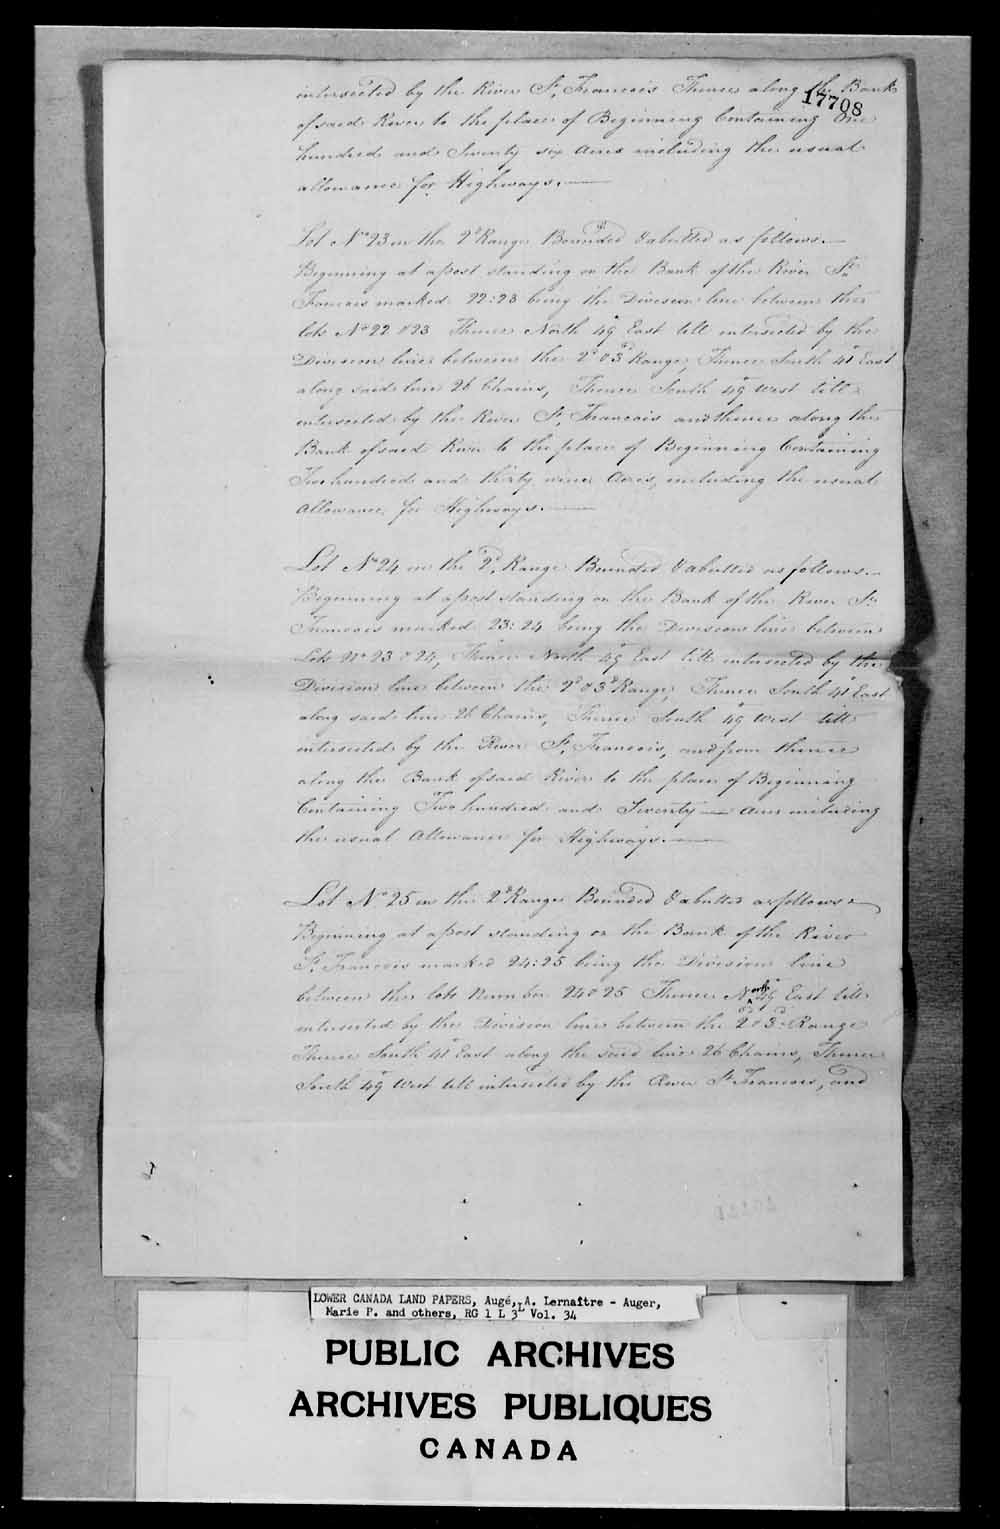 17708
intersected by the River St. Francois Thence along the Bank
of said River to the place of Beginning Containing One
hundred and Seventy six Acres including the usual
allowance for Highways.
Lot No 23 in the 2d Range Bounded & abutted as follows.
Beginning at a post standing on the Bank of the River St.
Francois marked 22:23 being the Division line between the
lots No 22 & 23 Thence North 49° East till intersected by the
Division line between the 2d & 3d Range, Thence South 41° East
along said line 26 Chains, Thence South 49° West till
intersected by the River St. Francois and thence along the
Bank of said River to the place of Beginning Containing
Two hundred and thirty nine Acres, including the usual
Allowance for Highways.
Lot No 24 in the 2d. Range Bounded & abutted as follows.
Beginning at a post standing on the Bank of the River St.
Francois marked 23:24 being the Division line between
Lots No 23 & 24, Thence North 49° East till intersected by the
Division line between the 2d & 3d Range, Thence South 41° East
along said line 26 Chains, Thence South 49° West till
intersected by the River St. Francois, and from thence
along the Bank of said River to the place of Beginning
Containing Two hundred and Seventy — Acres including
the usual Allowance for Highways.
Lot No 25 in the 2d Range Bounded & abutted as follows
Beginning at a post standing on the Bank of the River
St. Francois marked 24:25 being the Division line
between the lots Number 24 & 25 Thence North 49 East till
intersected by the Division line between the 2d & 3d Range
Thence South 41° East along the said line 26 Chains, Thence
South 49° West till intersected by the River St. Francois, and
LOWER CANADA LAND PAPERS, Augé, A. Lernaître - Auger,
Marie P. and others, RG 1 L 3L Vol. 34
PUBLIC ARCHIVES
ARCHIVES PUBLIQUES
CANADA